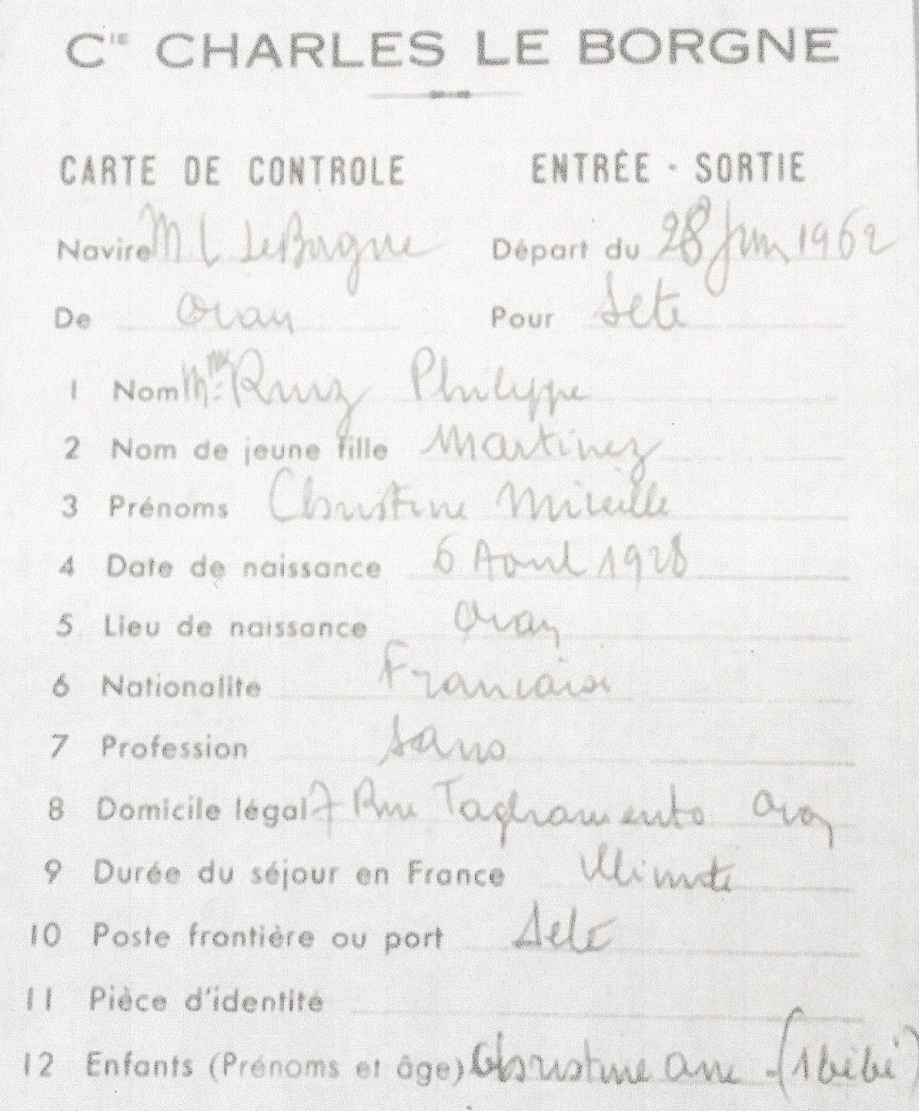 Cie CHARLES LE BORGNE
CARTE DE CONTROLE ENTRÉE - SORTIE
Navire M L LeBorgne Départ du 28 Juin 1962
De Oran Pour Sete
1 Nom Mme Ruiz Philippe
2 Nom de jeune fille Martinez
3 Prénoms Christine Mireille
4 Date de naissance 6 Aout 1928
5 Lieu de naissance Oran
6 Nationalite Francaise
7 Profession Sans
8 Domicile légal 7 Rue Tagliamento Oran
9 Durée du séjour en France Illimité
10 Poste frontière ou port Sete
11 Pièce d'identité
12 Enfants (Prénoms et âge) Christine (1 bébé)